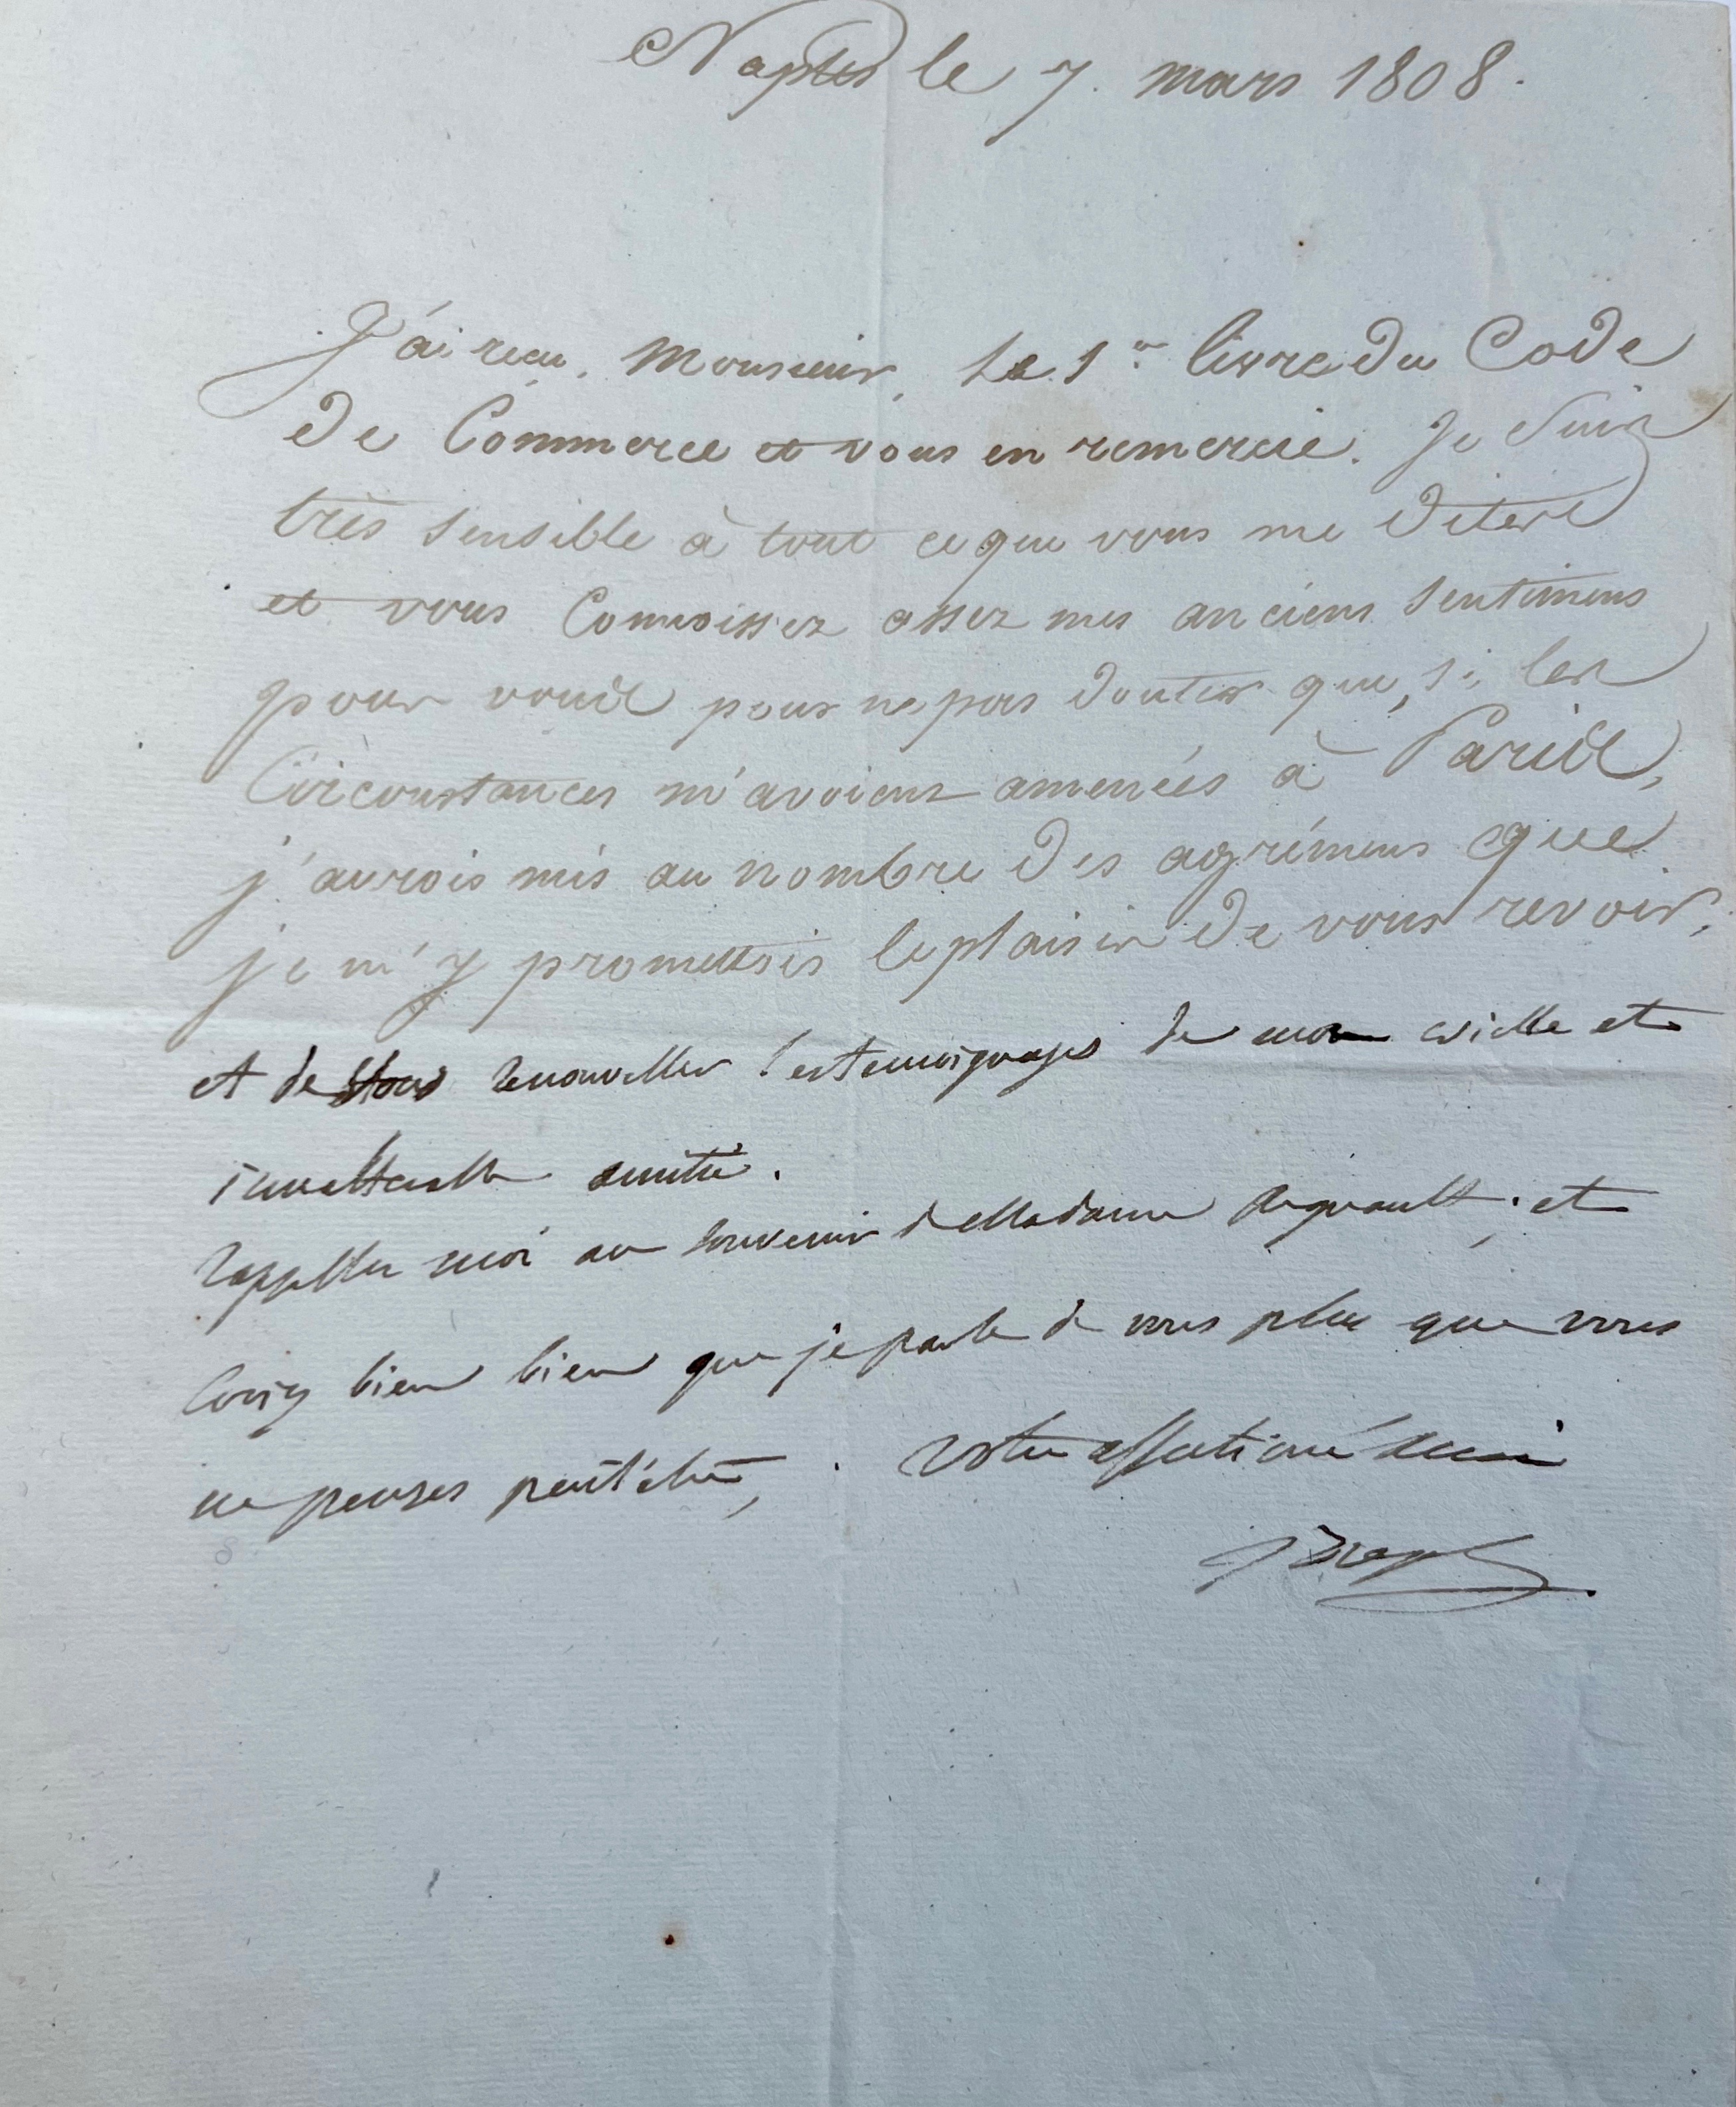 Naples le 7. mars 1808.
J'ai reçu, Monsieur, le 1er livre du Code
de Commerce et vous en remercie. Je suis
très sensible à tout ce que vous me dites
et vous connoissez assez mes anciens sentimens
pour vous pour ne pas douter que, si les
Circonstances m'avoient amenées à Paris,
j'aurois mis au nombre des agrémens que
je m'y promettois le plaisir de vous revoir,
et de vous renouveller les temoignages de mon vieille et
inaltérable amitié.
rappellez moi au souvenir de Madame Regnault; et
croiez bien bien que je parle de vous plus que vous
ne penses peut'être, votre affectioné ami
Joseph